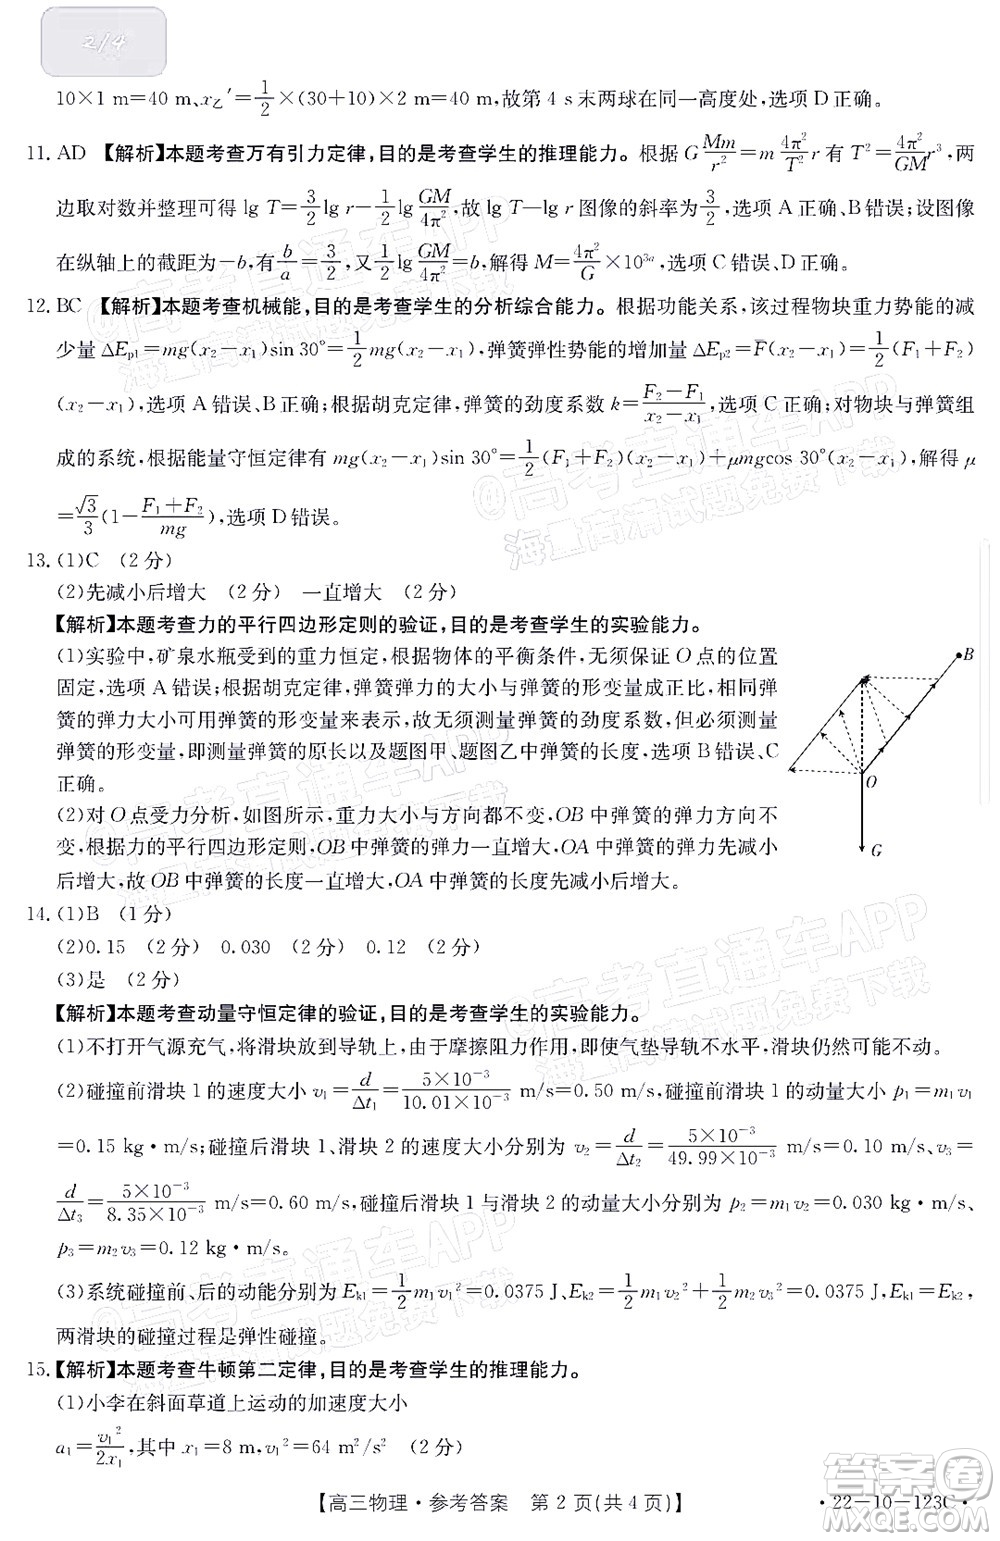 2/4
10×1 m=40 m,x乙′=1/2×(30+10)×2 m=40 m,故第 4 s末两球在同一高度处,选项D正确。
11. AD 【解析】本题考查万有引力定律,目的是考查学生的推理能力。根据 G Mm/r²=m 4π²/T² r 有 T²=4π²/GM r³,两
边取对数并整理可得 lg T=3/2 lg r−1/2 lg GM/4π²,故 lg T−lg r 图像的斜率为 3/2,选项 A 正确、B 错误;设图像
在纵轴上的截距为−b,有 b/a=3/2,又 1/2 lg GM/4π²=b,解得 M=4π²/G×10³ᵃ,选项C错误、D正确。
12. BC 【解析】本题考查机械能,目的是考查学生的分析综合能力。根据功能关系,该过程物块重力势能的减
少量 ΔEp1=mg(x₂−x₁)sin 30°=1/2 mg(x₂−x₁),弹簧弹性势能的增加量 ΔEp2=F̄(x₂−x₁)=1/2(F₁+F₂)
(x₂−x₁),选项 A 错误、B 正确;根据胡克定律,弹簧的劲度系数 k=(F₂−F₁)/(x₂−x₁),选项 C 正确;对物块与弹簧组
成的系统,根据能量守恒定律有 mg(x₂−x₁)sin 30°=1/2(F₁+F₂)(x₂−x₁)+μmgcos 30°(x₂−x₁),解得 μ
=√3/3(1−(F₁+F₂)/mg),选项 D 错误。
13. (1)C (2分)
(2)先减小后增大 (2分) 一直增大 (2分)
【解析】本题考查力的平行四边形定则的验证,目的是考查学生的实验能力。
(1)实验中,矿泉水瓶受到的重力恒定,根据物体的平衡条件,无须保证 O 点的位置
固定,选项 A 错误;根据胡克定律,弹簧弹力的大小与弹簧的形变量成正比,相同弹
簧的弹力大小可用弹簧的形变量来表示,故无须测量弹簧的劲度系数,但必须测量
弹簧的形变量,即测量弹簧的原长以及题图甲、题图乙中弹簧的长度,选项 B 错误、C
正确。
(2)对 O 点受力分析,如图所示,重力大小与方向都不变,OB 中弹簧的弹力方向不
变,根据力的平行四边形定则,OB 中弹簧的弹力一直增大,OA 中弹簧的弹力先减小
后增大,故 OB 中弹簧的长度一直增大,OA 中弹簧的长度先减小后增大。
B
O
G
14. (1)B (1分)
(2)0.15 (2分) 0.030 (2分) 0.12 (2分)
(3)是 (2分)
【解析】本题考查动量守恒定律的验证,目的是考查学生的实验能力。
(1)不打开气源充气,将滑块放到导轨上,由于摩擦阻力作用,即使气垫导轨不水平,滑块仍然可能静止。
(2)碰撞前滑块 1 的速度大小 v₁=d/Δt₁=5×10⁻³/10.01×10⁻³ m/s=0.50 m/s,碰撞前滑块 1 的动量大小 p₁=m₁v₁
=0.15 kg·m/s;碰撞后滑块 1、滑块 2 的速度大小分别为 v₂=d/Δt₂=5×10⁻³/49.99×10⁻³ m/s=0.10 m/s、v₃=
d/Δt₃=5×10⁻³/8.35×10⁻³ m/s=0.60 m/s,碰撞后滑块 1 与滑块 2 的动量大小分别为 p₂=m₁v₂=0.030 kg·m/s、
p₃=m₂v₃=0.12 kg·m/s。
(3)系统碰撞前、后的动能分别为 Ek1=1/2 m₁v₁²=0.0375 J、Ek2=1/2 m₁v₂²+1/2 m₂v₃²=0.0375 J,Ek1=Ek2,
两滑块的碰撞过程是弹性碰撞。
15. 【解析】本题考查牛顿第二定律,目的是考查学生的推理能力。
(1)小李在斜面草道上运动的加速度大小
a₁=v₁²/2x₁,其中 x₁=8 m,v₁²=64 m²/s² (2分)
【高三物理·参考答案 第 2 页(共 4 页)】
·22−10−123C·
@高考直通车APP
海量高清试题免费下载
答案圈
MXQE.COM